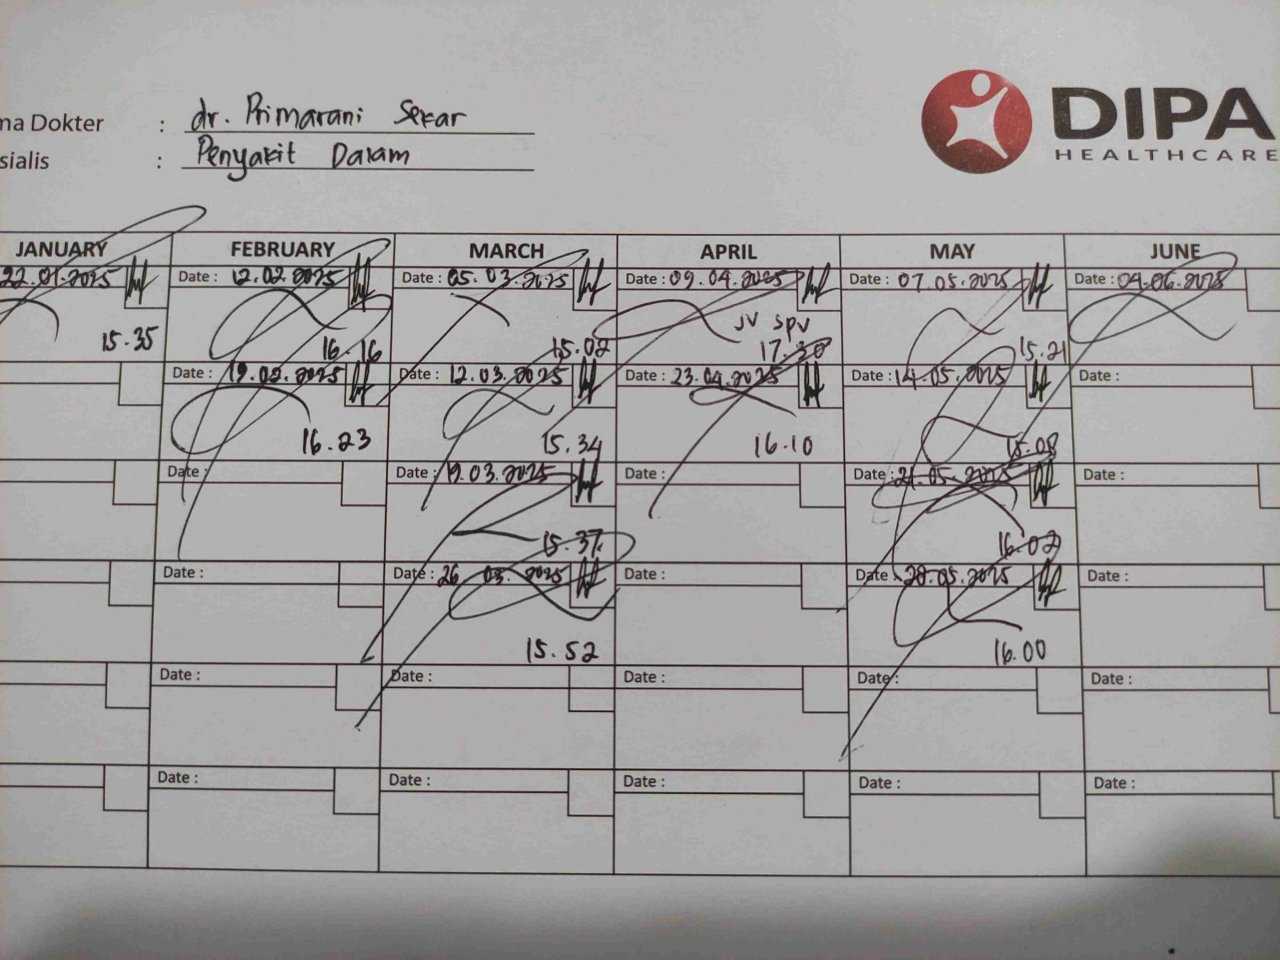 DIPA
HEALTHCARE
ma Dokter : dr. Primarani Sekar
sialis : Penyakit Dalam
JANUARY FEBRUARY MARCH APRIL MAY JUNE
22.01.2025 Date : 12.02.2025 Date : 05.03.2025 Date : 09.04.2025 Date : 07.05.2025 Date : 04.06.2025
JV SPV
15.35 16.16 15.02 17.30 15.21
Date : 19.02.2025 Date : 12.03.2025 Date : 23.04.2025 Date : 14.05.2025 Date :
16.23 15.34 16.10 15.08
Date : Date : 19.03.2025 Date : Date : 21.05.2025 Date :
15.37 16.02
Date : Date : 26 03.2025 Date : Date : 28.05.2025 Date :
15.52 16.00
Date : Date : Date : Date : Date :
Date : Date : Date : Date : Date :